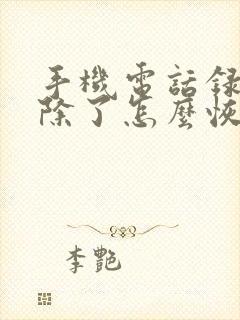 手機電話錄
除了怎麼恢
李艷